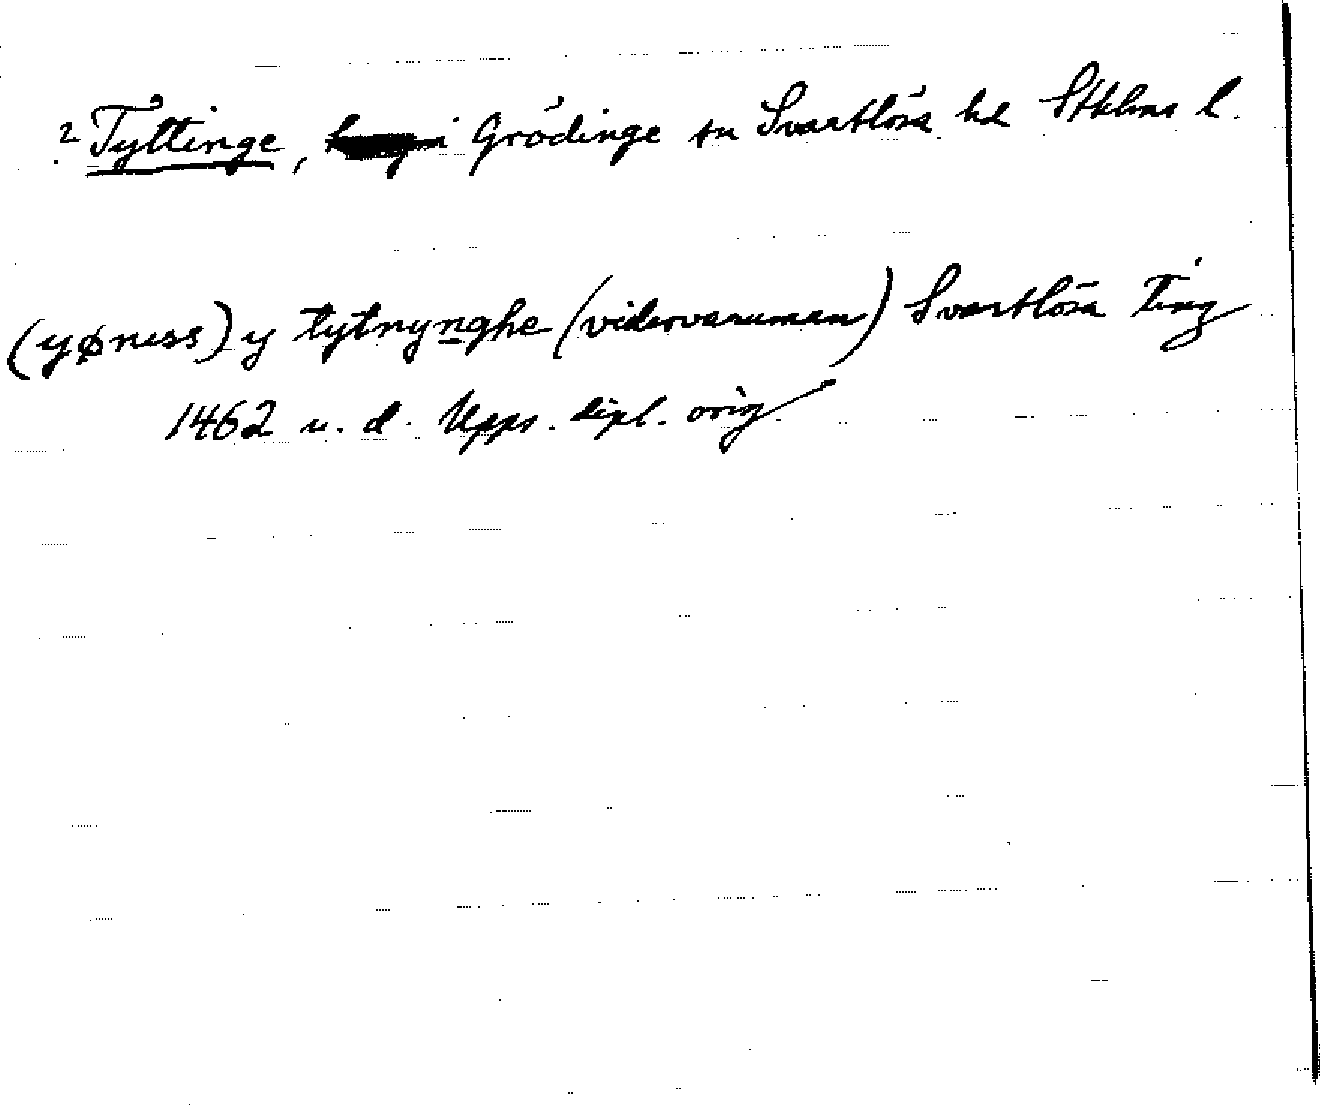 ? Tyttinge, i Grödinge sn Svartlösa hd Sthlms l.
(yøness) y tytnynghe (vidervaruman) Svartlösa Ting
1462 u. d. Upps. dipl. orig.